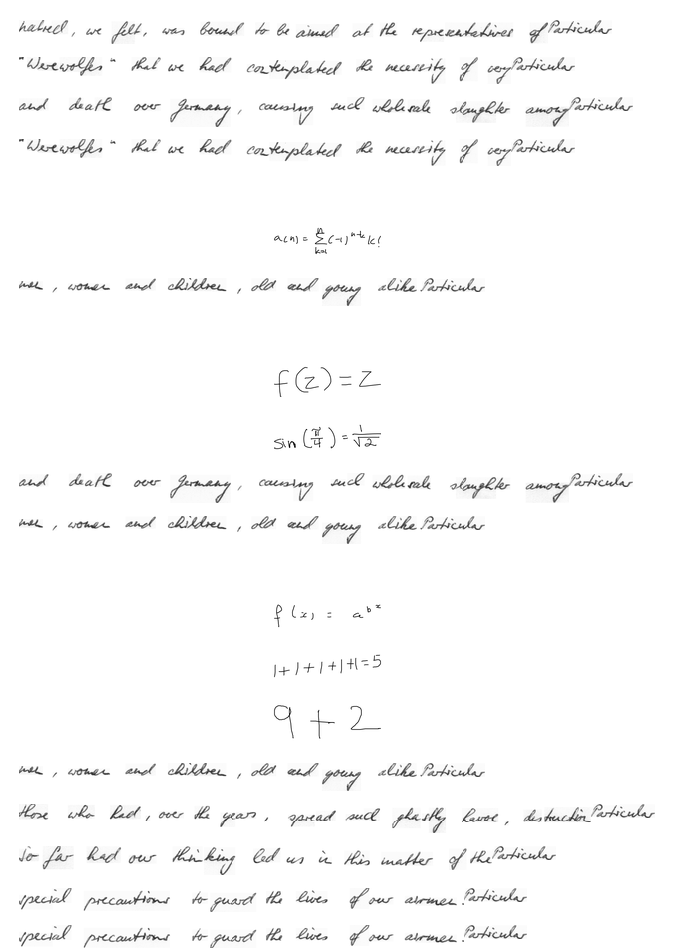 hatred, we felt, was bound to be aimed at the representatives of Particular
"Werewolfes" that we had contemplated the necessity of very Particular
and death over Germany, causing such wholesale slaughter among Particular
"Werewolfes" that we had contemplated the necessity of very Particular
a(n) = \sum_{k=1}^{n} (-1)^{n-k} k!
men, women and children, old and young alike Particular
f(z) = z
sin(\frac{\pi}{4}) = \frac{1}{\sqrt{2}}
and death over Germany, causing such wholesale slaughter among Particular
men, women and children, old and young alike Particular
f(x) = a^{b^x}
1+1+1+1+1=5
9 + 2
men, women and children, old and young alike Particular
those who had, over the years, spread such ghastly havoc, destruction Particular
So far had our thinking led us in this matter of the Particular
special precautions to guard the lives of our airmen. Particular
special precautions to guard the lives of our airmen. Particular